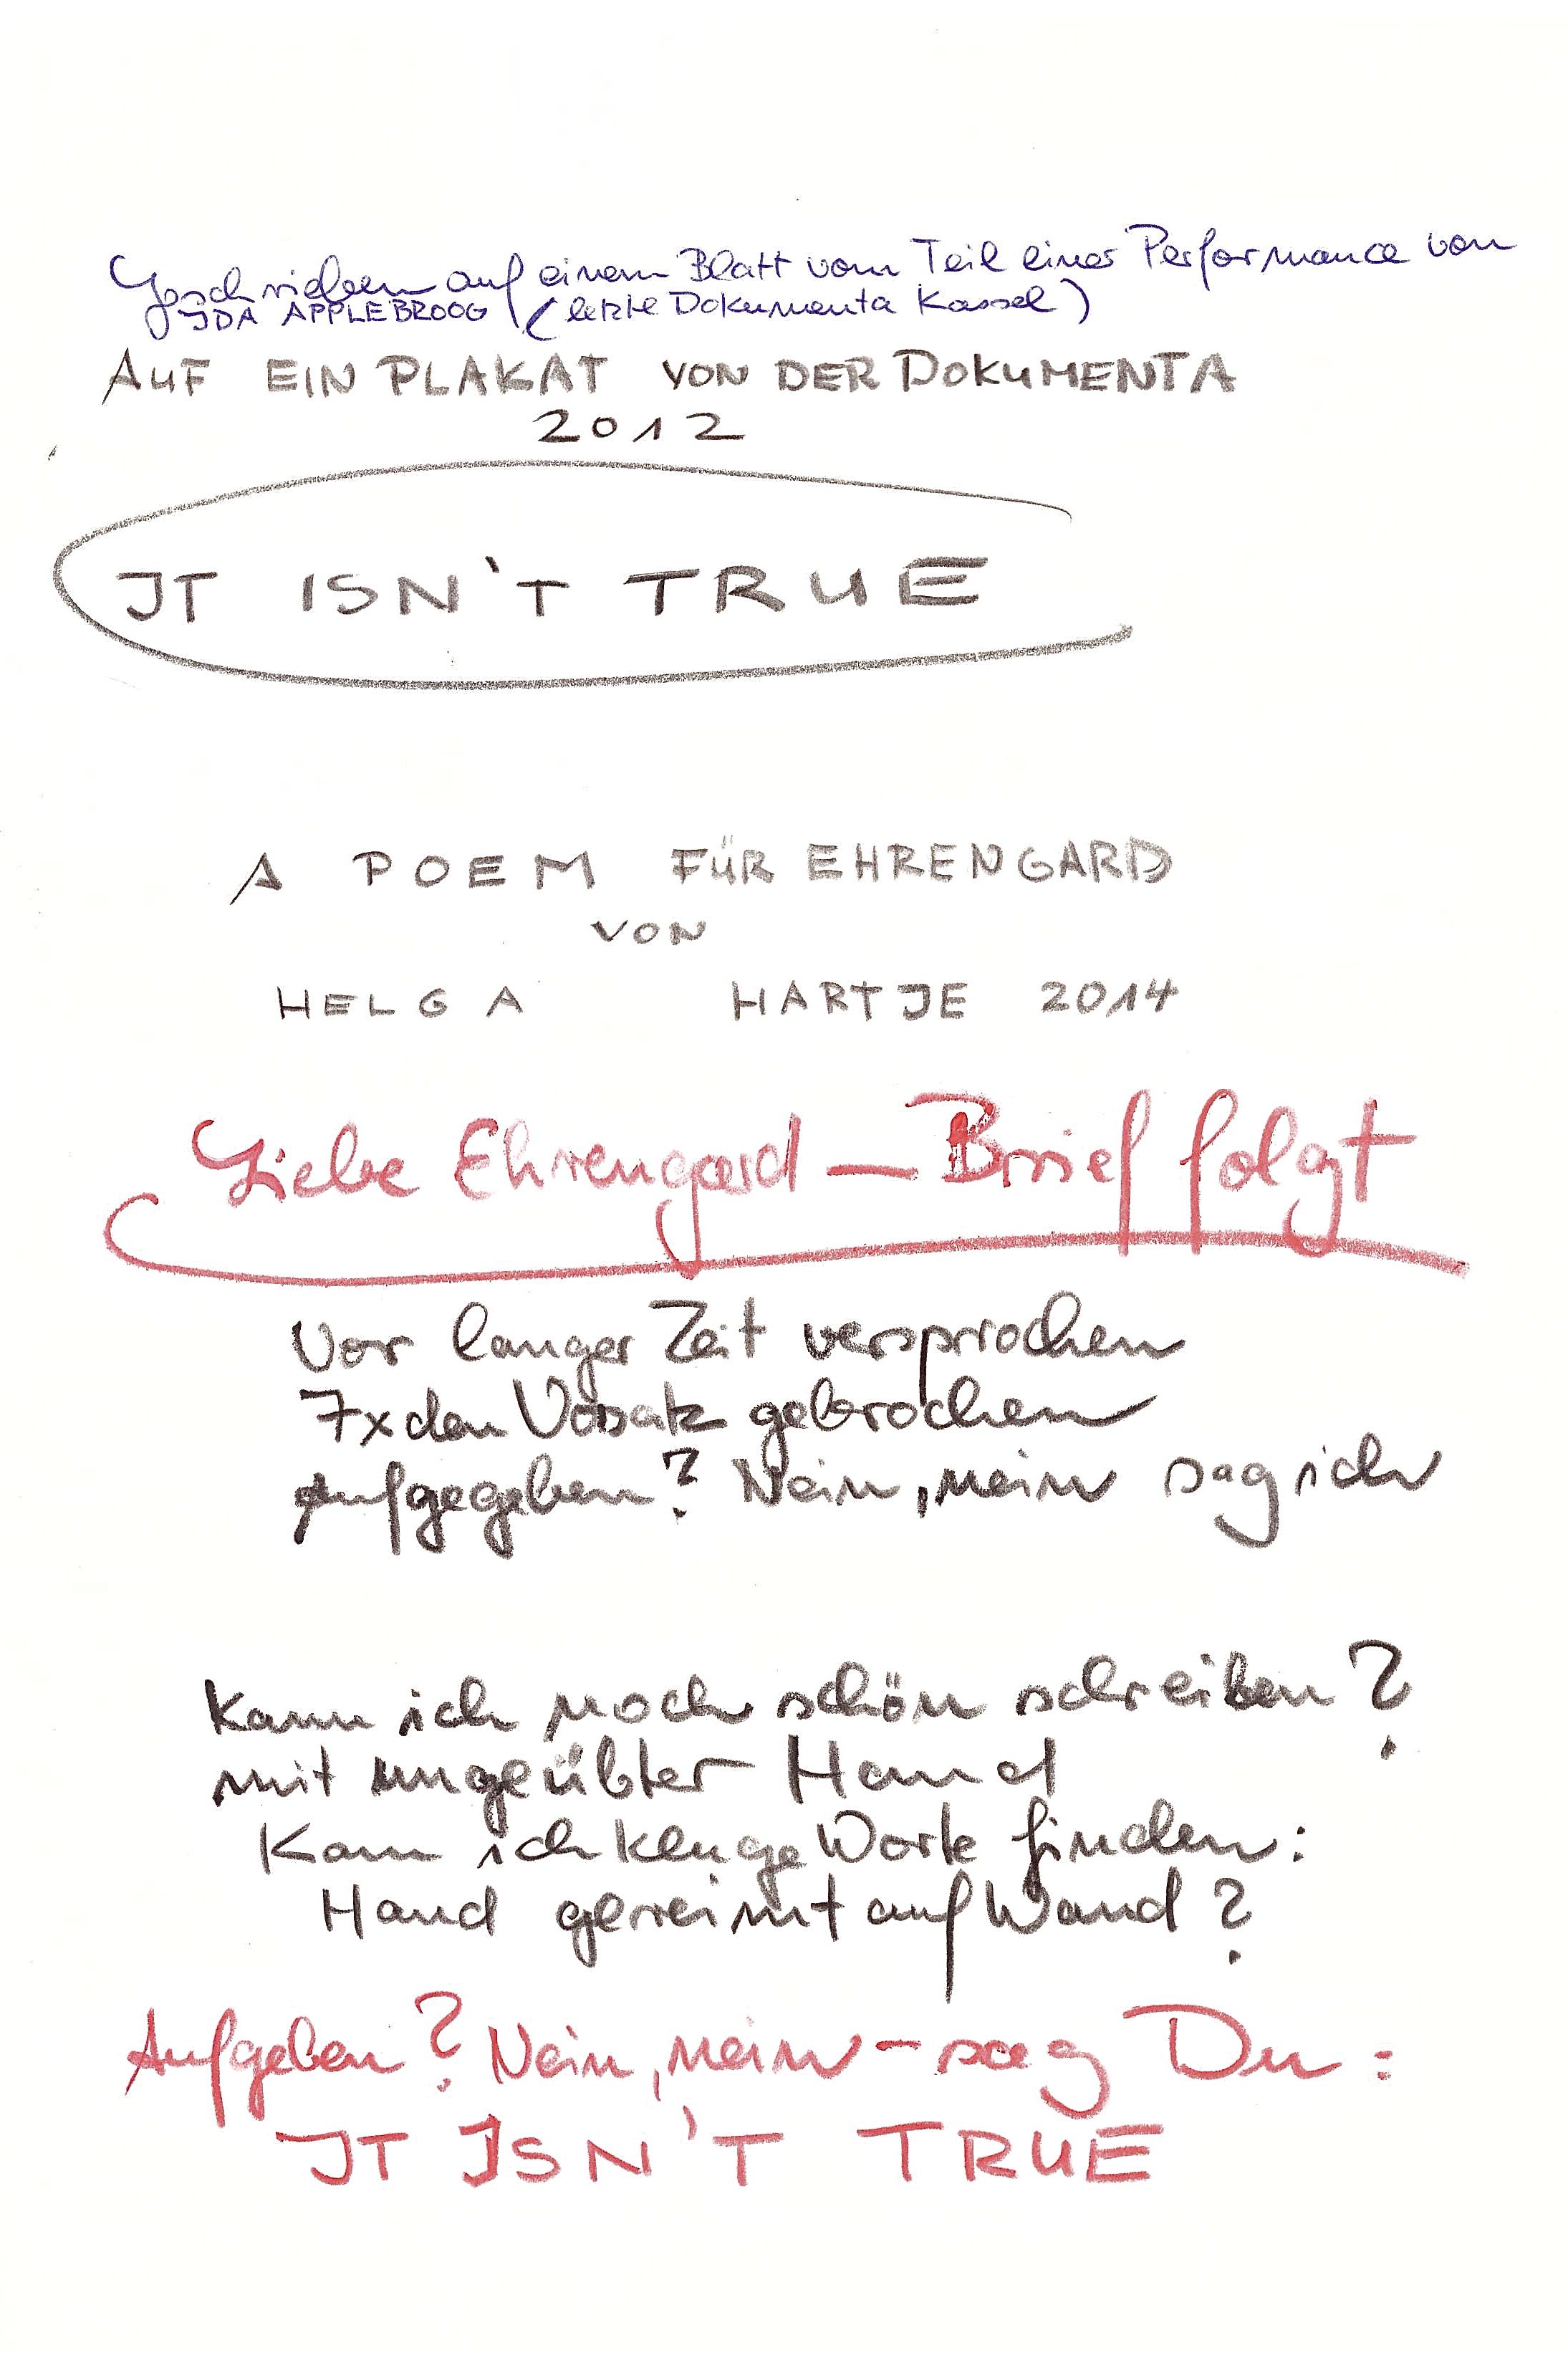 Geschrieben auf einem Blatt vom Teil einer Performance von
JDA APPLEBROOG (letzte Dokumenta Kassel)
AUF EIN PLAKAT VON DER DOKUMENTA
2012
JT ISN'T TRUE
A POEM FÜR EHRENGARD
VON
HELGA HARTJE 2014
Liebe Ehrengard — Brief folgt
Vor langer Zeit versprochen
7x den Vorsatz gebrochen
Aufgegeben? Nein, nein sag ich
Kann ich noch schön schreiben?
mit ungeübter Hand
Kann ich kluge Worte finden:
Hand gereimt auf Wand?
Aufgeben? Nein, nein - sag Du:
JT JSN'T TRUE